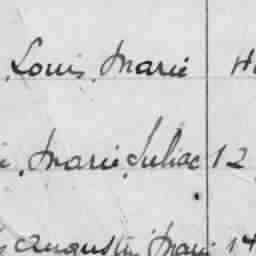 Louis Marie
Marie Juliac 12
Augustin Marie 14